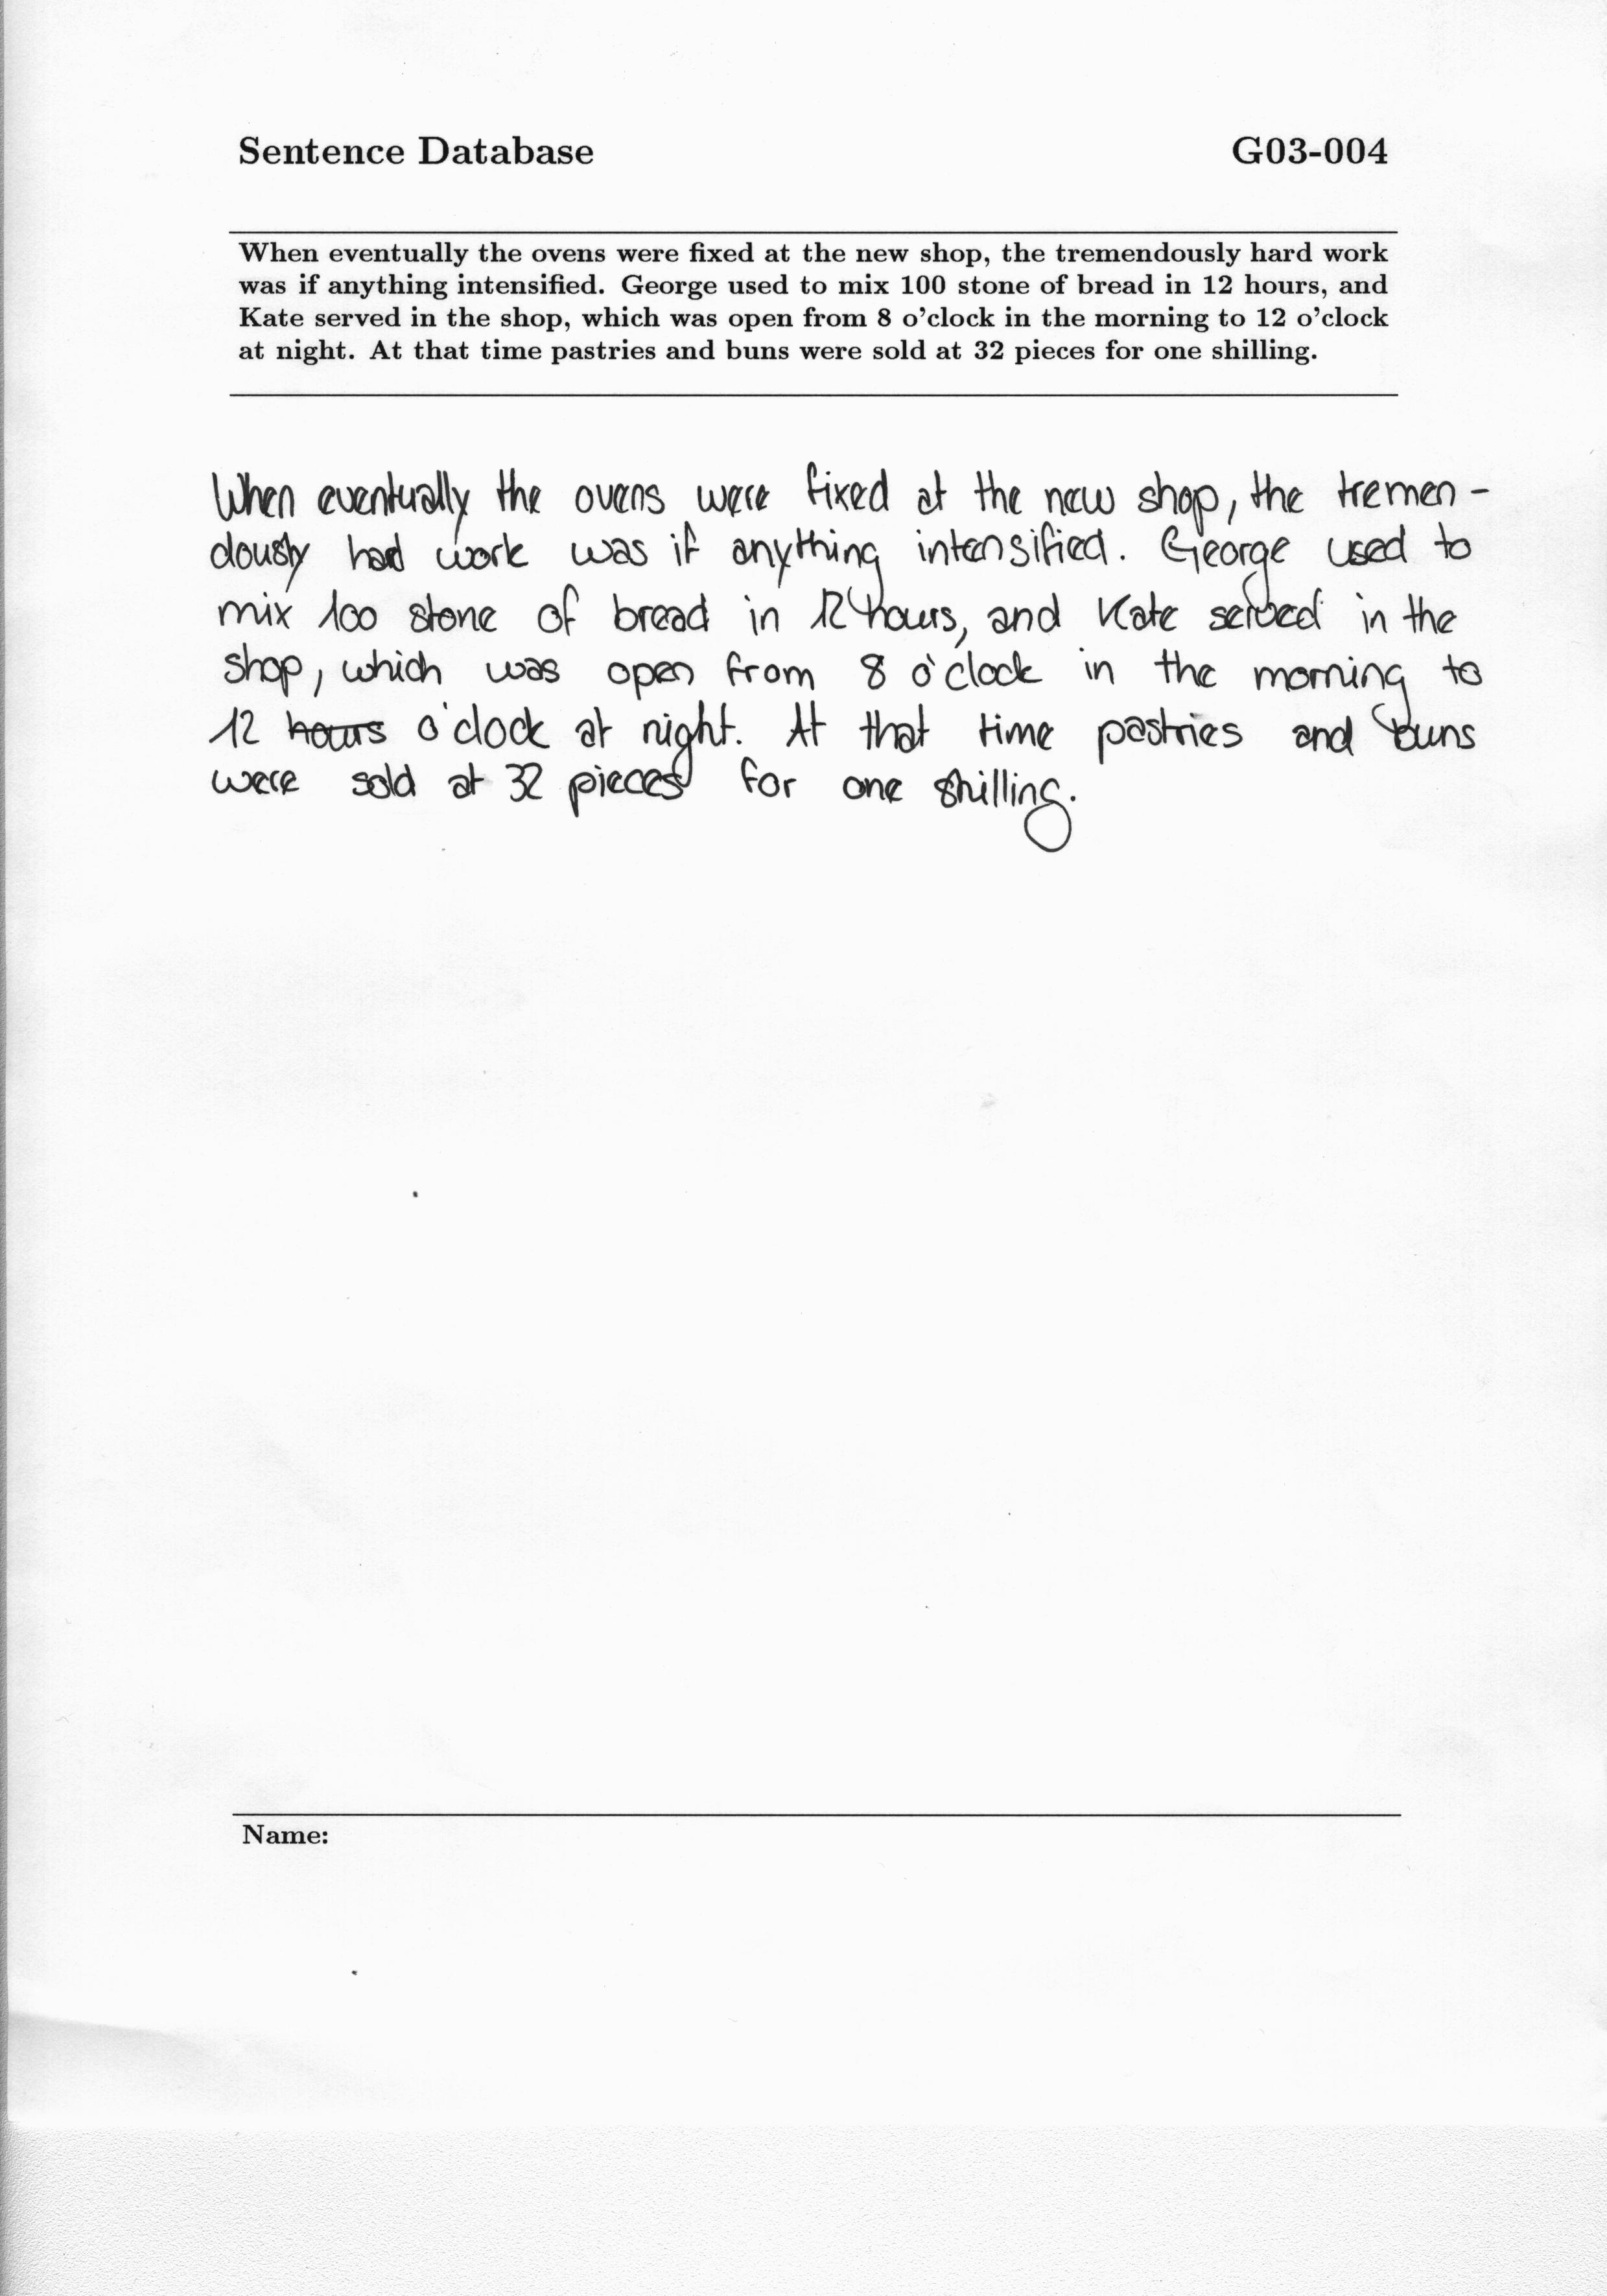 Sentence Database G03-004
When eventually the ovens were fixed at the new shop, the tremendously hard work
was if anything intensified. George used to mix 100 stone of bread in 12 hours, and
Kate served in the shop, which was open from 8 o'clock in the morning to 12 o'clock
at night. At that time pastries and buns were sold at 32 pieces for one shilling.
When eventually the ovens were fixed at the new shop, the tremen-
dously hard work was if anything intensified. George used to
mix 100 stone of bread in 12 hours, and Kate served in the
shop, which was open from 8 o'clock in the morning to
12 hours o'clock at night. At that time pastries and buns
were sold at 32 pieces for one shilling.
Name: